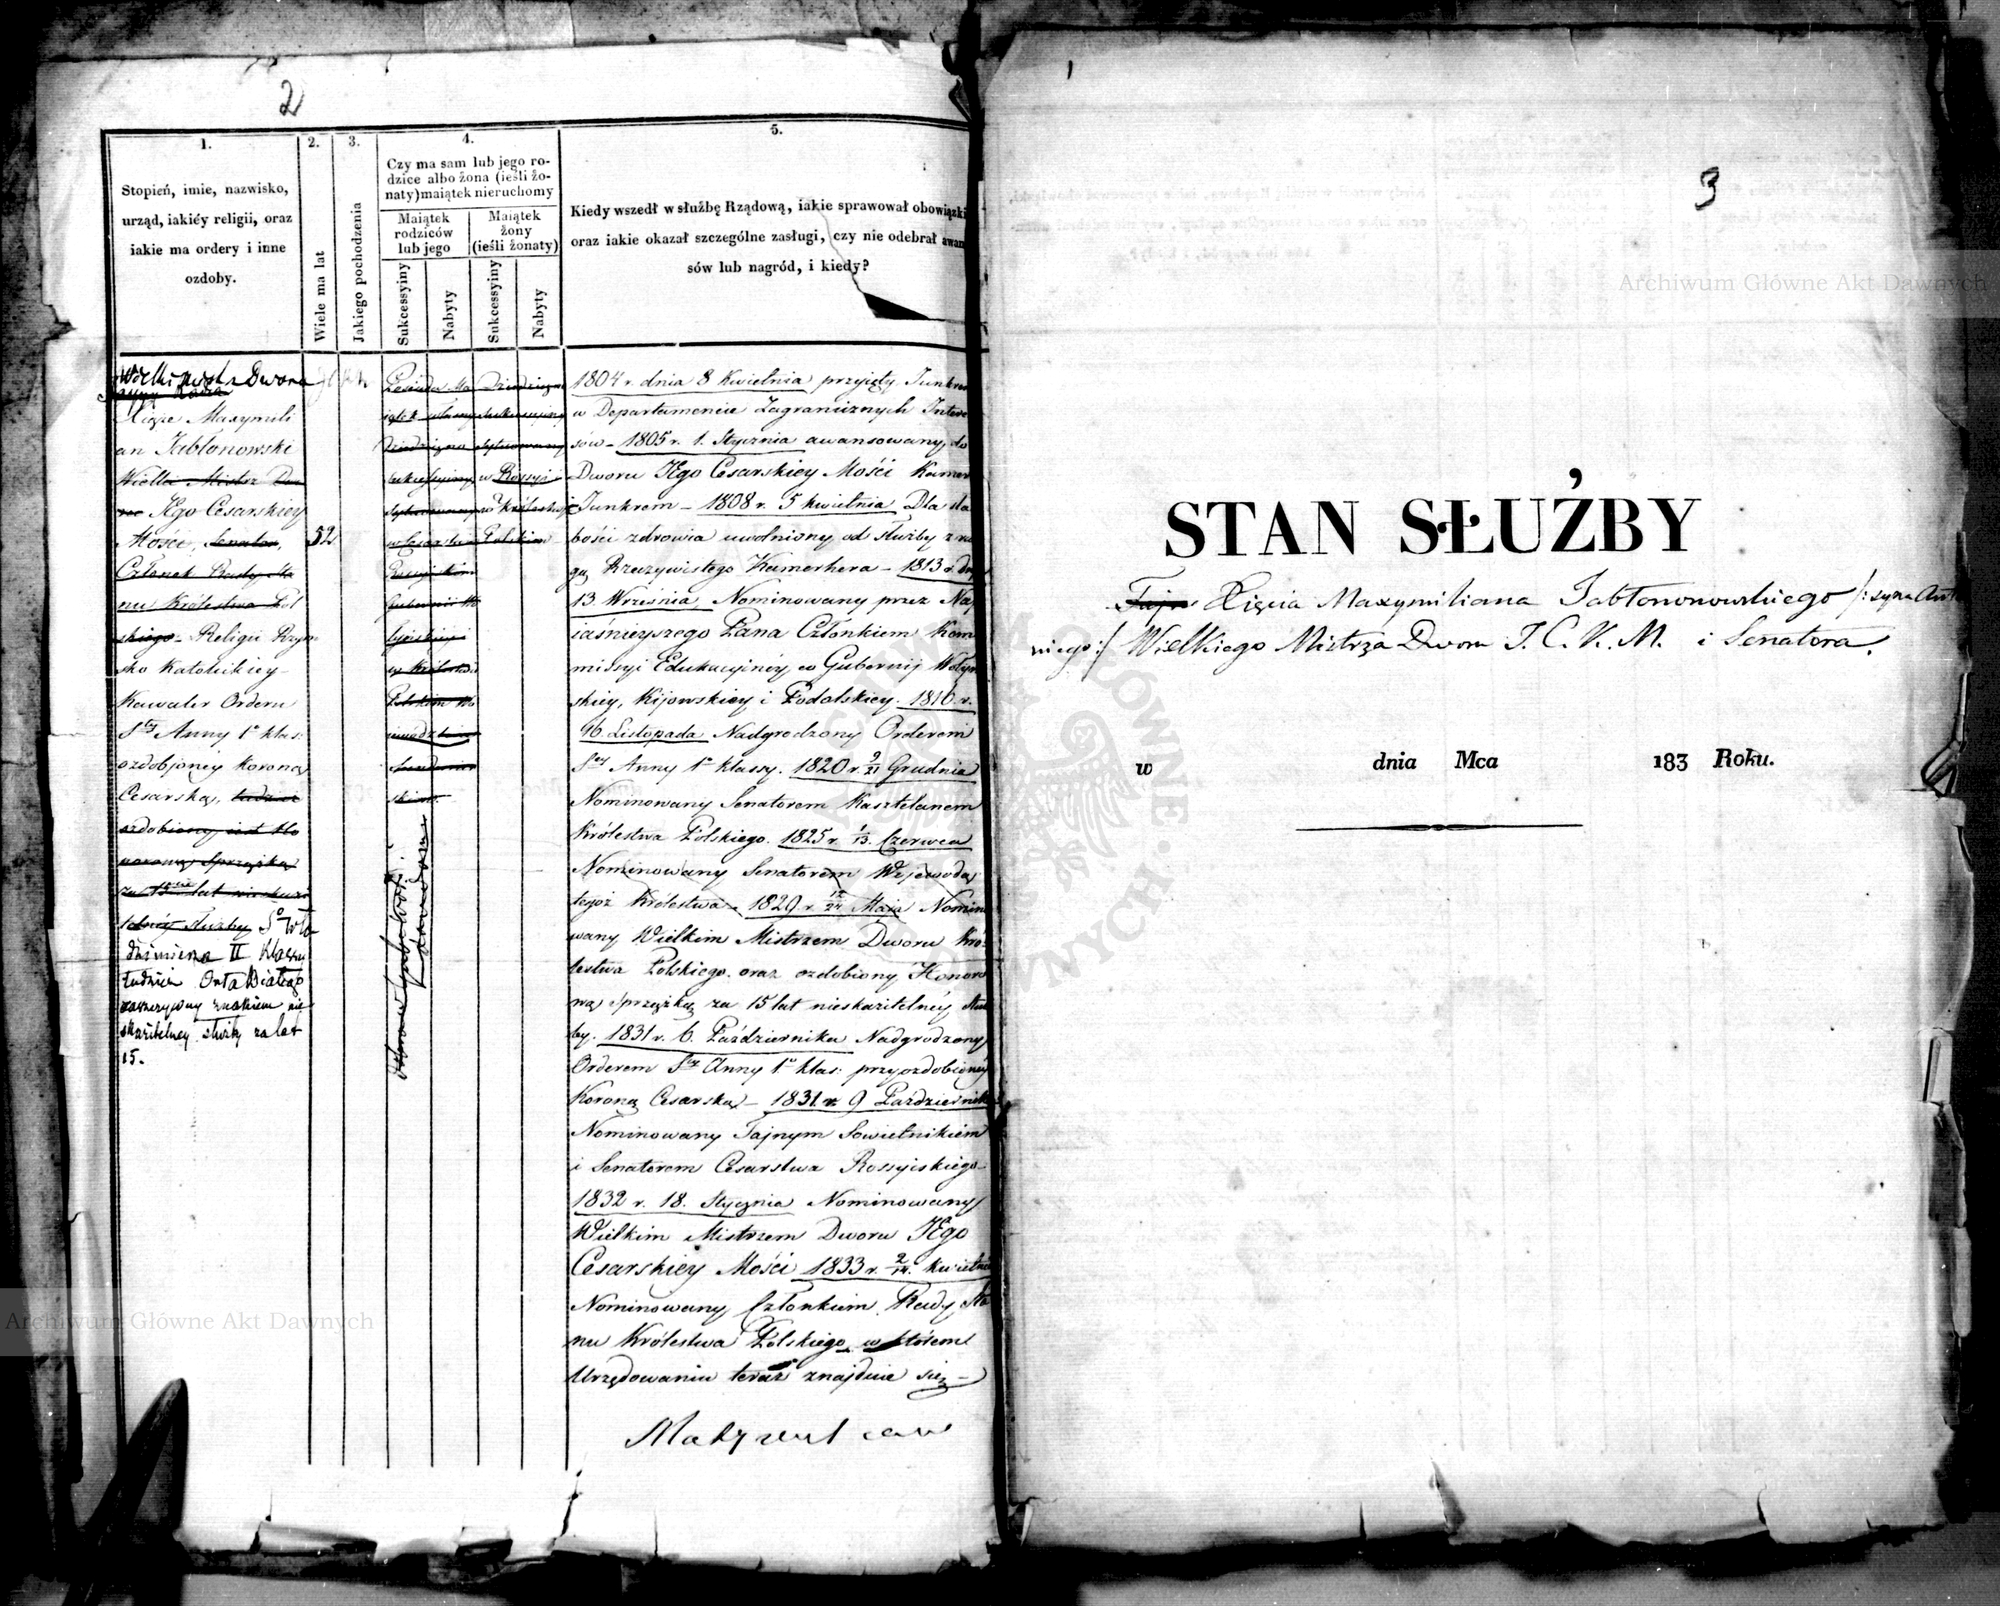 2
1.
Stopień, imie, nazwisko,
urząd, iakiéy religii, oraz
iakie ma ordery i inne
ozdoby.
2.
Wiele ma lat
3.
Jakiego pochodzenia
4.
Czy ma sam lub jego ro-
dzice albo żona (ieśli żo-
naty) maiątek nieruchomy
Maiątek
rodziców
lub jego
Maiątek
żony
(ieśli żonaty)
Sukcessyiny
Nabyty
Sukcessyiny
Nabyty
5.
Kiedy wszedł w służbę Rządową, iakie sprawował obowiązki
oraz iakie okazał szczególne zasługi, czy nie odebrał awan
sów lub nagród, i kiedy?
Wielki Dworu
Xiąże Maxymili
an Jabłonowski
Wielki Mistrz Dwo
ru JEgo Cesarskiey
Mości, Senator,
Członek Rady Sta
nu Królestwa Pol
skiego - Religii Rzym
sko Katolickiey -
Kawaler Orderu
Stey Anny 1ej klas:
ozdobioney Koroną
Cesarską, tudzież
ozdobiony iest Ho
norową Sprzążką
za 15cie lat nieskazi
telnéy służby So Wło
dzimierza II Klassy
tudzież Orła Białego
zaszczycony znakiem nie
skazitelney służby za lat
15.
52
Posiada Ma
iątek własny
Dziedziczno
sukcessyiny
sytuowany
w Cesarstwie
Rossyiskim
Gubernii Wo
łyńskiéj i
w Królestwie
Polskim Wo
iewództwie
Sandomir
skim.
Dziedziczno
sukcessyiny
sytuowany
w Rossyi i
w Królestwie
Polskim
1804 r. dnia 8 Kwietnia przyięty Junkrem
w Departamencie Zagranicznych Intere
sów - 1805 r. 1. Stycznia awansowany do
Dworu JEgo Cesarskiey Mości Kamer
Junkrem - 1808 r. 5 Kwietnia Dla sła
bości zdrowia uwolniony od służby z ran
gą Rzeczywistego Kamerhera - 1813 r. dnia
13. Września Nominowany przez Nay
iaśnieyszego Pana Członkiem Kom
missyi Edukacyinéy w Gubernij Wołyń
skiey, Kijowskiey i Podolskiey. 1816 r.
16. Listopada Nadgrodzony Orderem
Stey Anny 1ej klassy. 1820 r. 9/21 Grudnia
Nominowany Senatorem Kasztelanem
Królestwa Polskiego. 1825 r. 1/13. Czerwca
Nominowany Senatorem Wojewodą
tegoż Królestwa - 1829 r. 12/24 Maia Nomino
wany Wielkim Mistrzem Dworu Kró
lestwa Polskiego. oraz ozdobiony Honoro
wą Sprzążką za 15 lat nieskazitelnéy Służ
by. 1831 r. 6. Października Nadgrodzony
Orderem Stey Anny 1ej klas: przyozdobionéy
Koroną Cesarską - 1831. r. 9 Październik
Nominowany Tajnym Sowietnikiem
i Senatorem Cesarstwa Rossyiskiego -
1832 r. 18. Stycznia Nominowany
Wielkim Mistrzem Dworu JEgo
Cesarskiey Mości 1833 r. 2/14. Kwietnia
Nominowany Członkiem Rady Sta
nu Królestwa Polskiego, w którem
Urzędowaniu teraz znajduie się -
3
STAN SŁUŻBY
Xięcia Maxymiliana Jabłonowskiego /: syna Anto
niego :/ Wielkiego Mistrza Dworu J. C. K. M. i Senatora.
w dnia Mca 183 Roku.
Archiwum Główne Akt Dawnych
Archiwum Główne Akt Dawnych